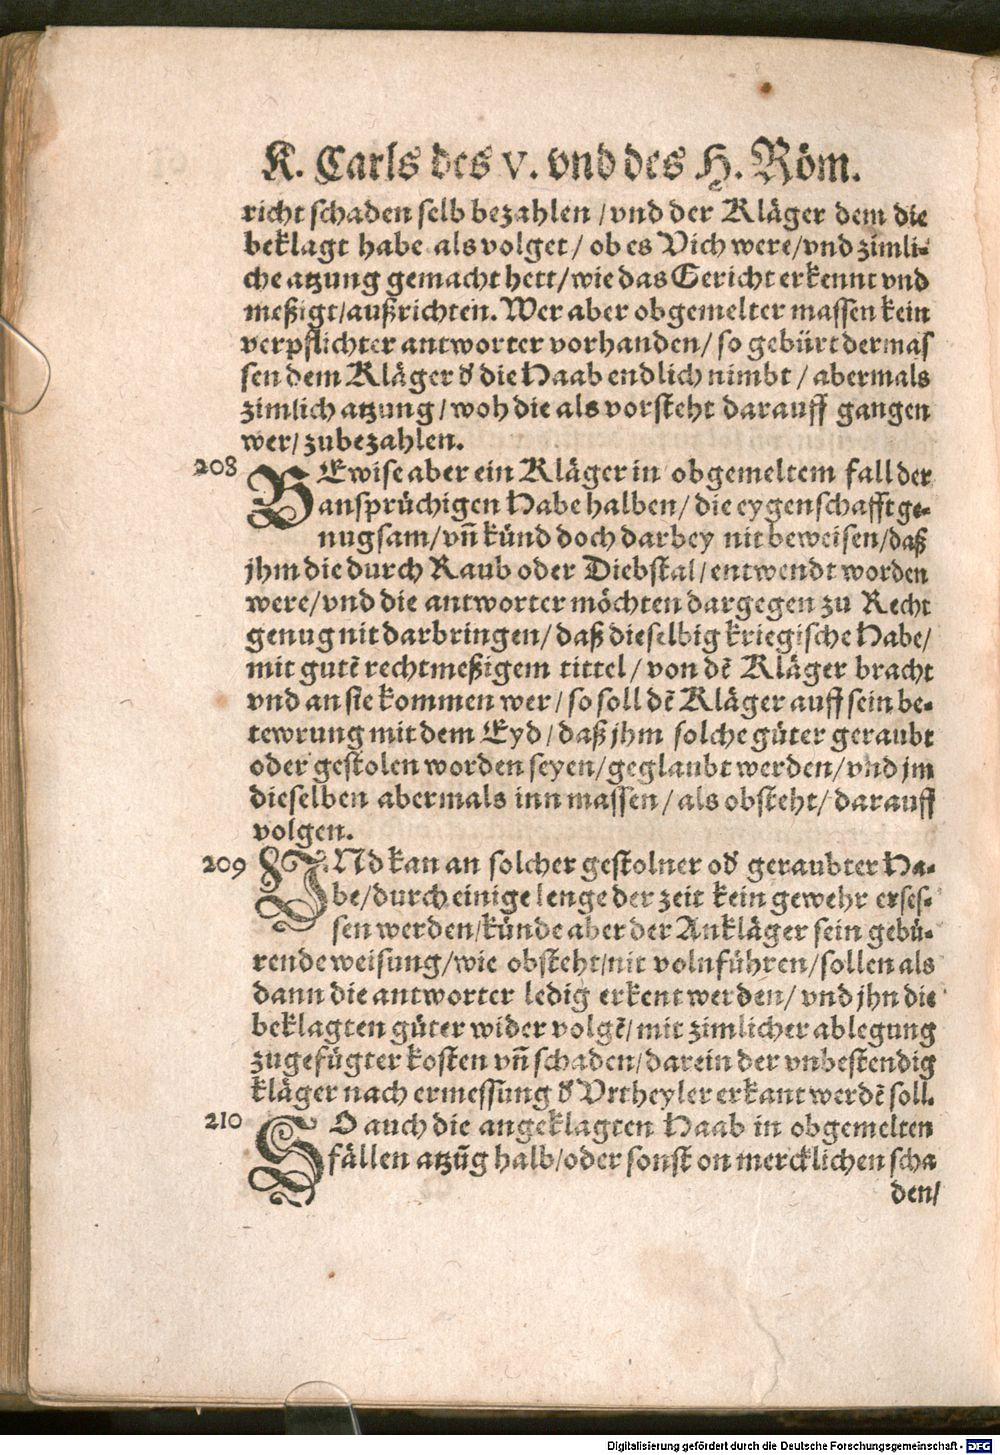 K. Carls des V. vnd des H. Röm.
richt schaden selb bezahlen / vnd der Kläger dem die
beklagt habe als volget / ob es Vich were / vnd zimli-
che atzung gemacht hett / wie das Gericht erkennt vnd
meßigt / außrichten. Wer aber obgemelter massen kein
verpflichter antworter vorhanden / so gebürt dermas
sen dem Kläger d̕ die Haab endlich nimbt / abermals
zimlich atzung / woh die als vorsteht darauff gangen
wer / zubezahlen.
208 BEwise aber ein Kläger in obgemeltem fall der
ansprüchigen Habe halben / die eygenschafft ge-
nugsam / vn̄ künd doch darbey nit beweisen / daß
jhm die durch Raub oder Diebstal / entwendt worden
were / vnd die antworter möchten dargegen zu Recht
genug nit darbringen / daß dieselbig kriegische Habe /
mit gutē rechtmeßigem tittel / von dē Kläger bracht
vnd an sie kommen wer / so soll dē Kläger auff sein be-
tewrung mit dem Eyd / daß jhm solche güter geraubt
oder gestolen worden seyen / geglaubt werden / vnd jm
dieselben abermals inn massen / als obsteht / darauff
volgen.
209 VNd kan an solcher gestolner od̕ geraubter Ha-
be / durch einige lenge der zeit kein gewehr erses-
sen werden / künde aber der Ankläger sein gebü-
rende weisung / wie obsteht / nit volnführen / sollen als
dann die antworter ledig erkent werden / vnd jhn die
beklagten güter wider volgē / mit zimlicher ablegung
zugefügter kosten vn̄ schaden / darein der vnbestendig
kläger nach ermessung d̕ Vrtheyler erkant werdē soll.
210 SO auch die angeklagten Haab in obgemelten
fällen atzūg halb / oder sonst on mercklichen scha
den /
Digitalisierung gefördert durch die Deutsche Forschungsgemeinschaft - DFG